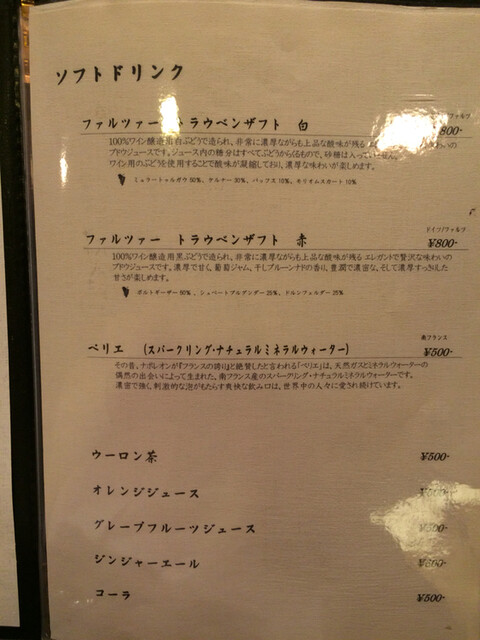 ソフトドリンク
ファルツァー トラウベンザフト 白
800-
100%ワイン醸造用白ぶどうで造られ、非常に濃厚ながらも上品な酸味が残る
ブドウジュースです。ジュース内の糖分はすべてぶどうからくるもので、砂糖は入っていません。
ワイン用のぶどうを使用することで酸味が凝縮しており、濃厚な味わいが楽しめます。
ミュラートゥルガウ 50%、ケルナー 30%、バッフス 10%、モリオムスカート 10%
ドイツ/ファルツ
ファルツァー トラウベンザフト 赤 ¥800-
100%ワイン醸造用黒ぶどうで造られ、非常に濃厚ながらも上品な酸味が残るエレガントで贅沢な味わいの
ブドウジュースです。濃厚で甘く、葡萄ジャム、干しプルーンナドの香り、豊潤で濃密な、そして濃厚すっきりした
甘さが楽しめます。
ポルトギーザー 50%、シュペートブルグンダー 25%、ドルンフェルダー 25%
南フランス
ペリエ (スパークリング・ナチュラルミネラルウォーター) ¥500-
その昔、ナポレオンが『フランスの誇り』と絶賛したと言われる「ペリエ」は、天然ガスとミネラルウォーターの
偶然の出会いによって生まれた、南フランス産のスパークリング・ナチュラルミネラルウォーターです。
濃密で強く、刺激的な泡がもたらす爽快な飲み口は、世界中の人々に愛され続けています。
ウーロン茶 ¥500-
オレンジジュース ¥500-
グレープフルーツジュース ¥500-
ジンジャーエール ¥500-
コーラ ¥500-